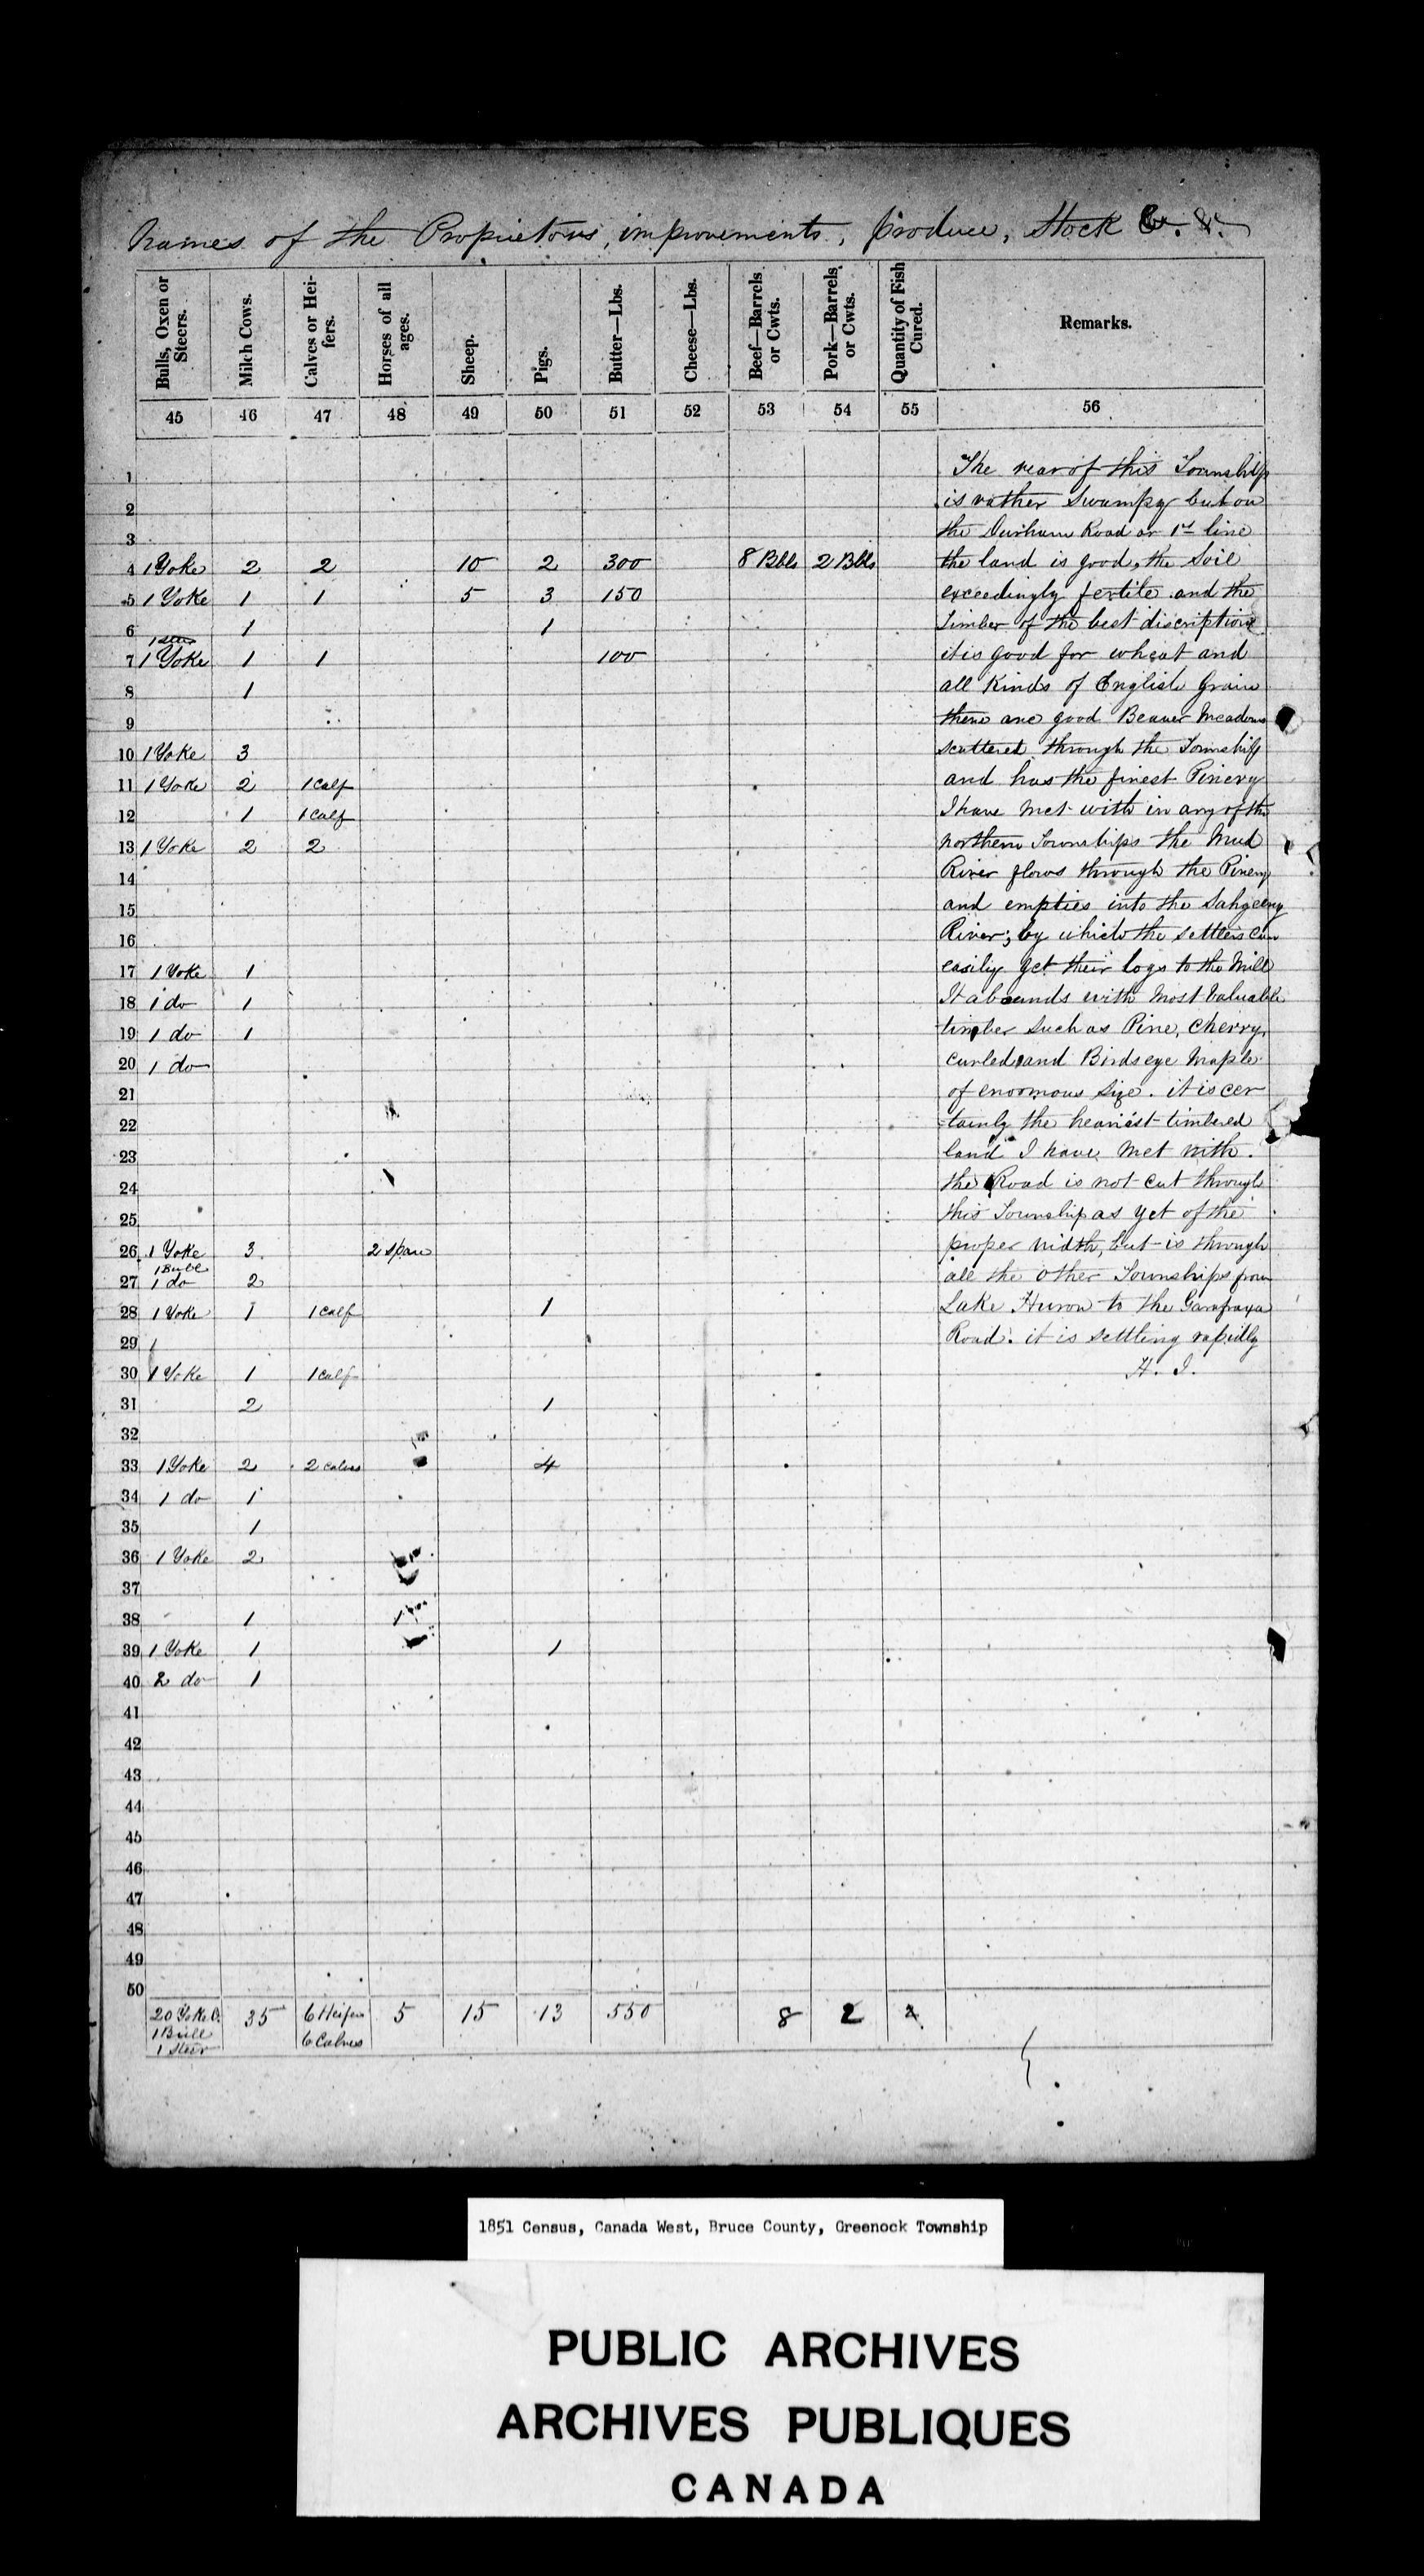 Names of the Proprietors, improvements, produce, Stock &. &.
Bulls, Oxen or Steers. Milch Cows. Calves or Heifers. Horses of all ages. Sheep. Pigs. Butter—Lbs. Cheese—Lbs. Beef—Barrels or Cwts. Pork—Barrels or Cwts. Quantity of Fish Cured. Remarks.
45 46 47 48 49 50 51 52 53 54 55 56
1 The rear of this Township
2 is rather Swampy but on
3 the Durham Road or 1st line
4 1 Yoke 2 2 10 2 300 8 Bbls 2 Bbls the land is good, the Soil
5 1 Yoke 1 1 5 3 150 exceedingly fertile and the
6 1 1 timber of the best discription
1 Steer
7 1 Yoke 1 1 100 it is good for wheat and
8 1 all Kinds of English Grain
9 there are good Beaver Meadows
10 1 Yoke 3 scattered through the Township
11 1 Yoke 2 1 Calf and has the finest Pinery
12 1 1 Calf I have met with in any of the
13 1 Yoke 2 2 northern Townships the Mud
14 River flows through the Pinery
15 and empties into the Sahgeeng
16 River; by which the settlers can
17 1 Yoke 1 easily get their logs to the Mill
18 1 do 1 It abounds with most Valuable
19 1 do 1 timber Such as Pine, Cherry,
20 1 do curled and Birds eye Maple
21 of enormous Size. it is cer
22 tainly the heaviest timbered
23 land I have met with.
24 the Road is not cut through
25 this Township as yet of the
26 1 Yoke 3 2 Span proper width, but is through
1 Bull
27 1 do 2 all the other Townships from
28 1 Yoke 1 1 Calf 1 Lake Huron to the Garafraxa
29 1 Road. it is settling rapidly
30 1 Yoke 1 1 Calf H. I.
31 2 1
32
33 1 Yoke 2 2 Calves 4
34 1 do 1
35 1
36 1 Yoke 2
37
38 1 1
39 1 Yoke 1 1
40 2 do 1
41
42
43
44
45
46
47
48
49
50
20 Yoke O. 35 6 Heifers 5 15 13 550 8 2
1 Bull 6 Calves
1 Steer
1851 Census, Canada West, Bruce County, Greenock Township
PUBLIC ARCHIVES
ARCHIVES PUBLIQUES
CANADA